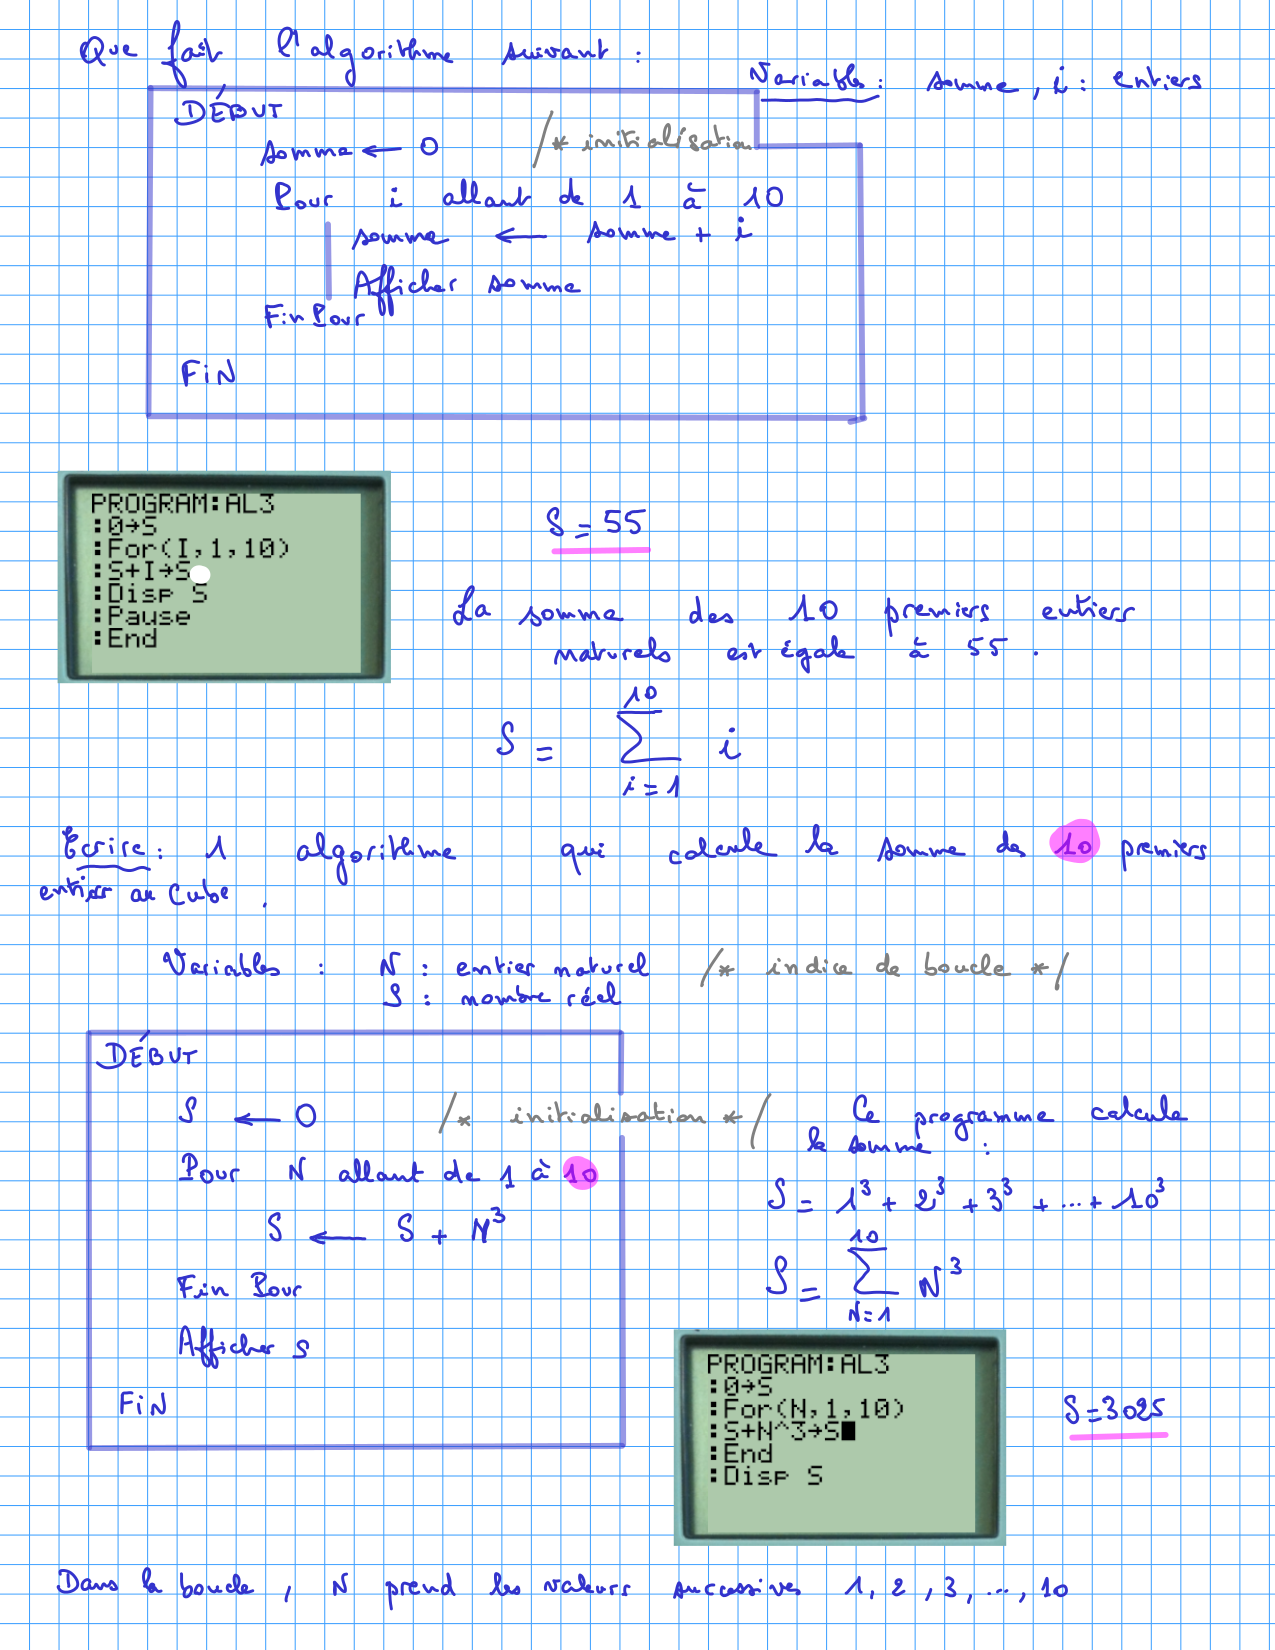 Que fait l'algorithme suivant :
Variables : somme, i : entiers
DÉBUT
somme ← 0 /* initialisation
Pour i allant de 1 à 10
somme ← somme + i
Afficher somme
Fin Pour
FiN
PROGRAM:AL3
:0→S
:For(I,1,10)
:S+I→S
:Disp S
:Pause
:End
S = 55
La somme des 10 premiers entiers
naturels est égale à 55.
10
S = ∑ i
i = 1
Ecrire : 1 algorithme qui calcule la somme des 10 premiers
entier au cube.
Variables : N : entier naturel /* indice de boucle */
S : nombre réel
DÉBUT
S ← 0 /* initialisation */
Pour N allant de 1 à 10
S ← S + N³
Fin Pour
Afficher S
FiN
Ce programme calcule
la somme :
S = 1³ + 2³ + 3³ + ... + 10³
10
S = ∑ N³
N=1
PROGRAM:AL3
:0→S
:For(N,1,10)
:S+N^3→S
:End
:Disp S
S=3025
Dans la boucle, N prend les valeurs successives 1, 2, 3, ..., 10